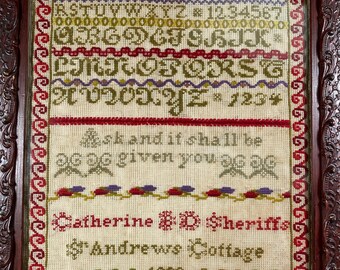 RSTUVWXYZ 1234567
ABCDEFGHIK
LMNOPQRST
UVWXYZ * 1234
Ask and it shall be
given you
Catherine B D Sheriffs
St Andrews Cottage